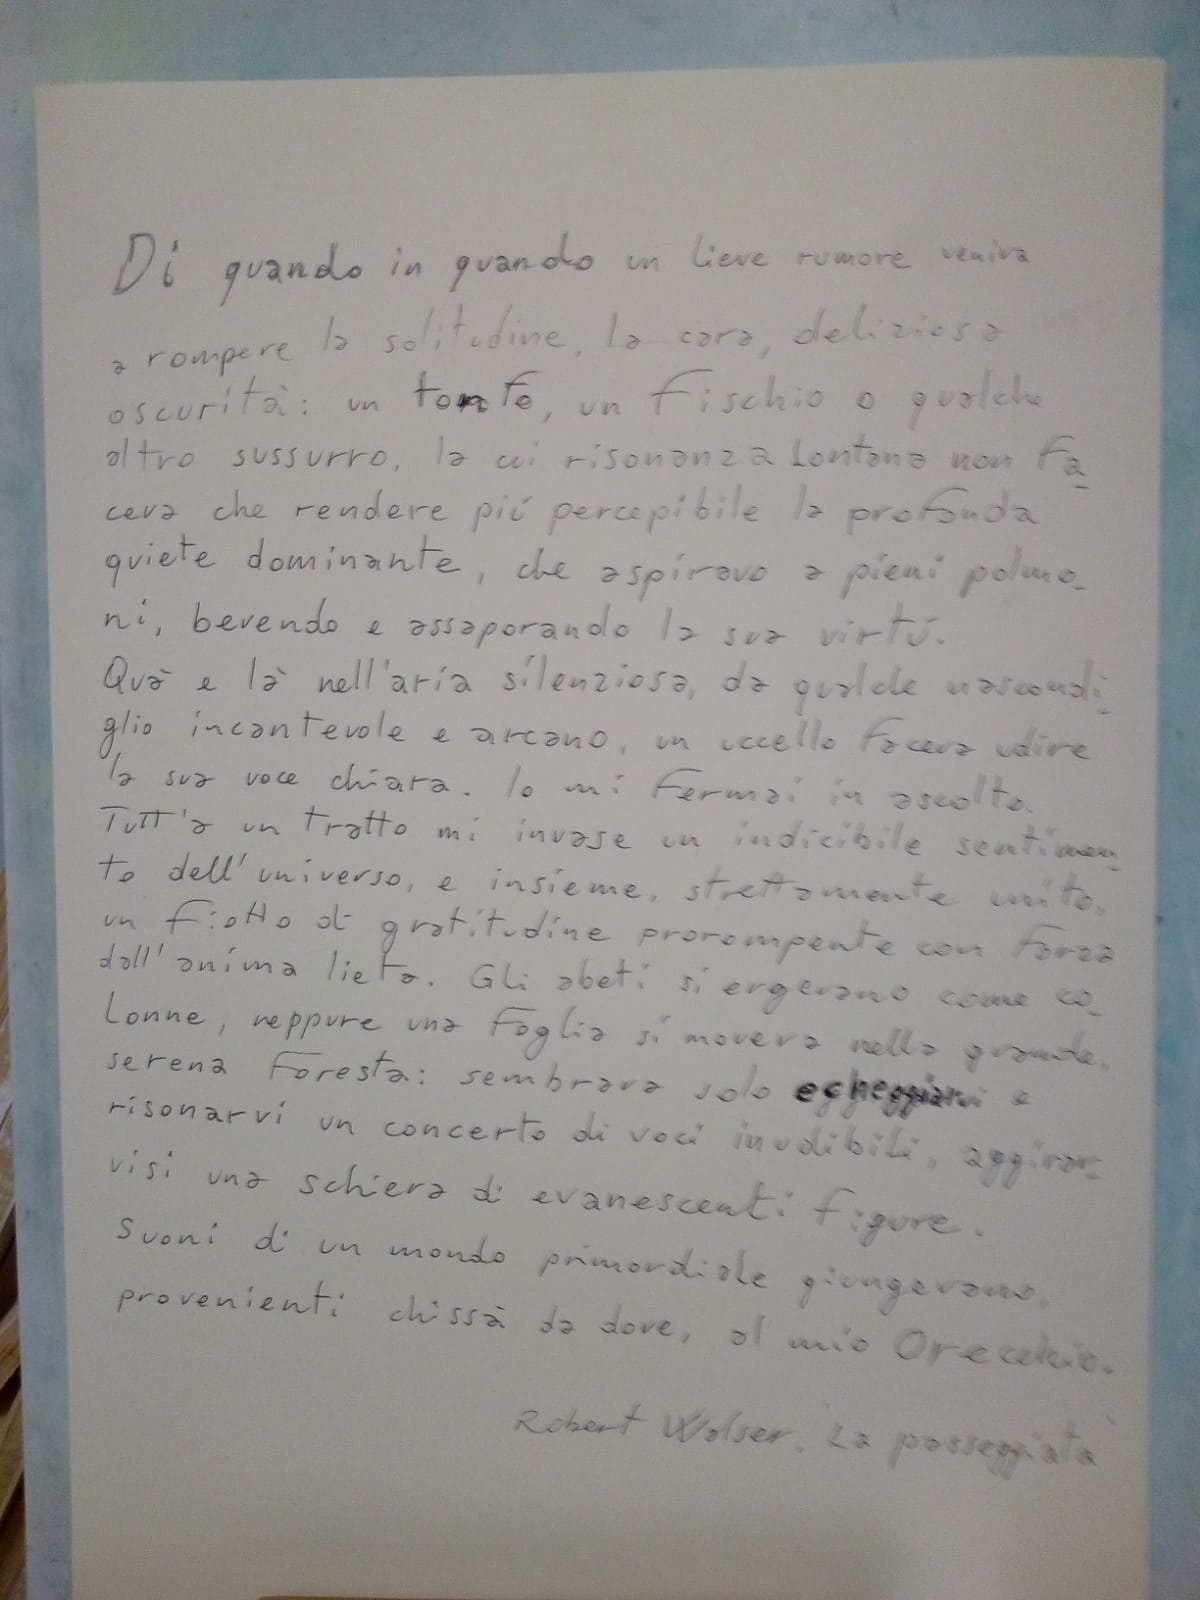 Di quando in quando un lieve rumore veniva
a rompere la solitudine, la cara, deliziosa
oscurità: un tonfo, un fischio o qualche
altro sussurro, la cui risonanza lontana non fa_
ceva che rendere piú percepibile la profonda
quiete dominante, che aspiravo a pieni polmo_
ni, bevendo e assaporando la sua virtú.
Quà e là nell'aria silenziosa, da qualche nascondi_
glio incantevole e arcano, un uccello faceva udire
la sua voce chiara. Io mi fermai in ascolto.
Tutt'a un tratto mi invase un indicibile sentimen_
to dell'universo, e insieme, strettamente unito,
un fiotto di gratitudine prorompente con forza
dall'anima lieta. Gli abeti si ergevano come co_
lonne, neppure una foglia si moveva nella grande,
serena foresta: sembrava solo echeggiarvi e
risonarvi un concerto di voci inudibili, aggirar_
visi una schiera di evanescenti figure.
Suoni di un mondo primordiale giungevano,
provenienti chissà da dove, al mio Orecchio.
Robert Walser, La passeggiata